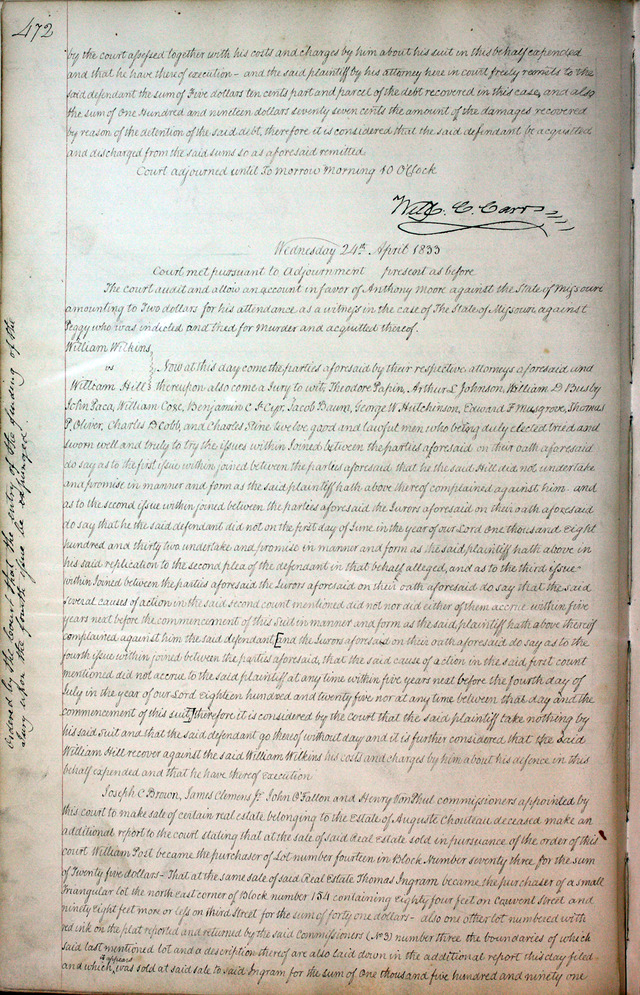 472
by the court assessed together with his costs and charges by him about his suit in this behalf expended
and that he have thereof execution - and the said plaintiff by his attorney here in court freely remits to the
said defendant the sum of Five dollars ten cents part and parcel of the debt recovered in this case, and also
the sum of One Hundred and nineteen dollars seventy seven cents the amount of the damages recovered
by reason of the detention of the said debt, therefore it is considered that the said defendant be acquitted
and discharged from the said sums so as aforesaid remitted
Court adjourned until To morrow Morning 10 O'Clock
Will. C. Carr
Wednesday 24th April 1833
Court met pursuant to adjournment present as before
The court audit and allow an account in favor of Anthony Moore against the State of Missouri
amounting to Two dollars for his attendance as a witness in the case of The State of Missouri against
Peggy who was indicted and tried for Murder and acquitted thereof.
William Wilkins
vs } Now at this day come the parties aforesaid by their respective attorneys aforesaid and
William Hill } thereupon also come a Jury to wit, Theodore Papin, Arthur L Johnson, William D Busby
John Paca, William Coze, Benjamin C St Cyr, Jacob Bawn, George W Hutchinson, Edward F Musgrove, Thomas
P. Oliver, Charles B Cobb, and Charles Stine twelve good and lawful men who being duly elected tried and
sworn well and truly to try the issues within Joined between the parties aforesaid on their oath aforesaid
do say as to the first issue within joined between the parties aforesaid that he the said Hill did not undertake
and promise in manner and form as the said plaintiff hath above thereof complained against him - and
as to the second issue within joined between the parties aforesaid the Jurors aforesaid on their oath aforesaid
do say that he the said defendant did not on the first day of June in the year of our Lord One thousand Eight
hundred and thirty two undertake and promise in manner and form as the said plaintiff hath above in
his said replication to the second plea of the defendant in that behalf alleged, and as to the third issue
within Joined between the parties aforesaid, the Jurors aforesaid on their oath aforesaid do say that the said
several causes of action in the said second count mentioned did not nor did either of them accrue within five
years next before the commencement of this Suit in manner and form as the said plaintiff hath above thereof
complained against him the said defendant [and the Jurors aforesaid on their oath aforesaid do say as to the
fourth issue within joined between the parties aforesaid, that the said cause of action in the said first count
mentioned did not accrue to the said plaintiff at any time within five years next before the fourth day of
July in the year of our Lord Eighteen hundred and twenty five nor at any time between that day and the
commencement of this suit,] therefore it is considered by the Court that the said plaintiff take nothing by
his said suit and that the said defendant go thereof without day and it is further considered that the said
William Hill recover against the said William Wilkins his costs and charges by him about his defence in this
behalf expended and that he have thereof execution
Joseph C Brown, James Clemens Jr John O'Fallon and Henry Von Phul commissioners appointed by
this court to make sale of certain real estate belonging to the Estate of Auguste Chouteau deceased make an
additional report to the court stating that at the sale of said Real Estate sold in pursuance of the order of this
court William Post became the purchaser of Lot number fourteen in Block Number seventy three for the sum
of Twenty five dollars - That at the same sale of said Real Estate Thomas Ingram became the purchaser of a small
triangular lot the north east corner of Block number 154 containing eighty four feet on Convent Street and
ninety eight feet more or less on Third Street for the sum of forty one dollars - also one other lot numbered with
red ink on the plat reported and returned by the said Commissioners (No 3) number three the boundaries of which
said last mentioned lot and a description thereof are also laid down in the additional report this day filed
and which, it appears was sold at said sale to said Ingram for the sum of One thousand five hundred and ninety one
Ordered by the Court that the entry of the finding of the
Jury upon the fourth issue be expunged